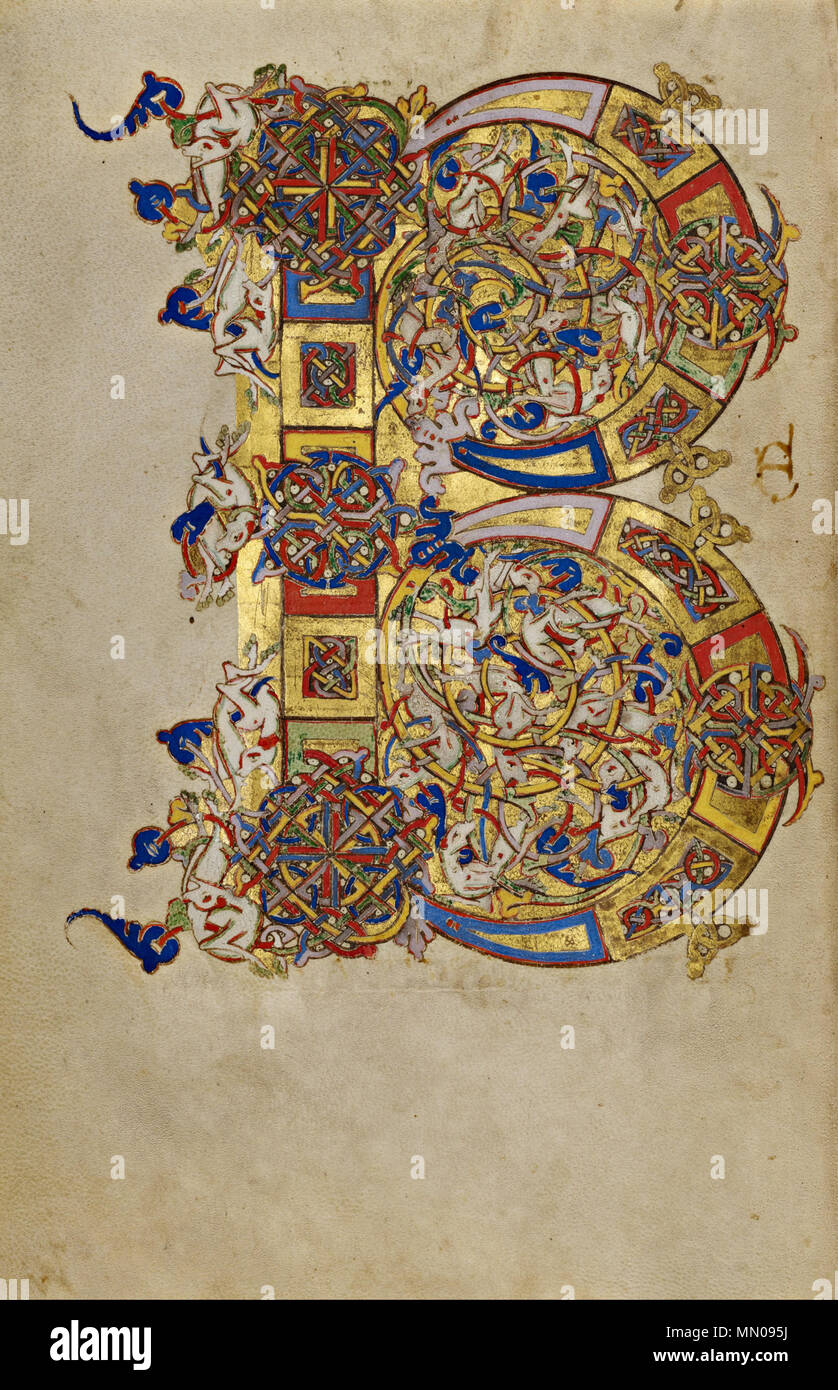 B
a
a
a
a
alamy
Image ID: MN095J
www.alamy.com